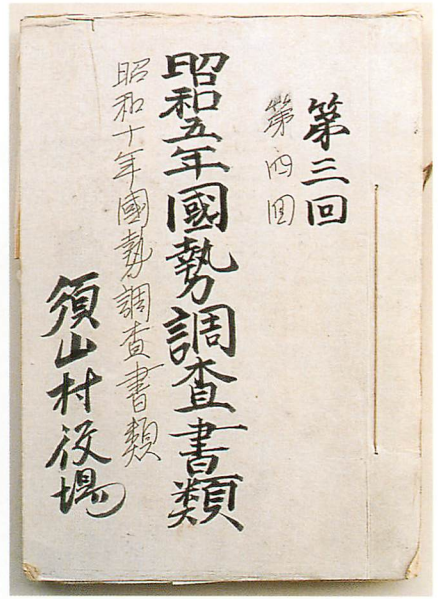 第三回
第四回
昭和五年國勢調査書類
昭和十年國勢調査書類
須山村役場